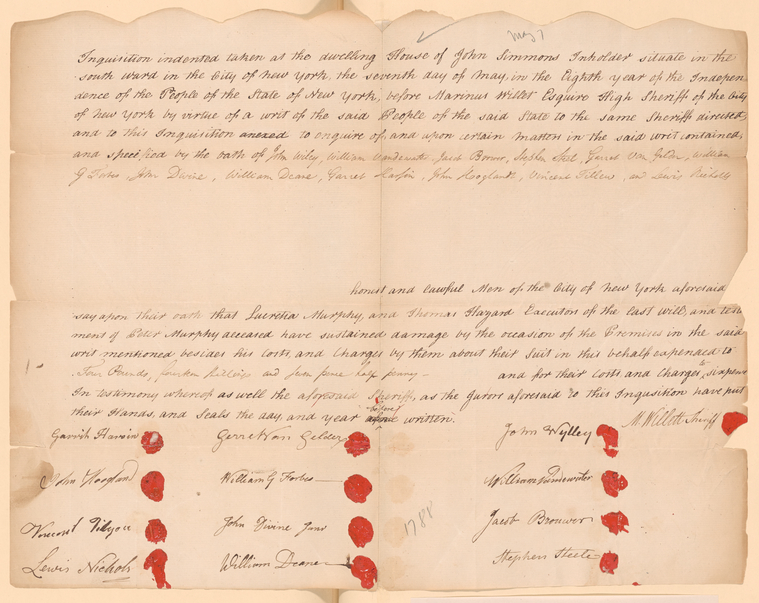 May 7
Inquisition indented taken at the dwelling House of John Simmons Inholder situate in the
south ward in the City of New York, the seventh day of May, in the Eighth year of the Indepen
dence of the People of the State of New York, before Marinus Willet Esquire High Sheriff of the City
of New York by virtue of a writ of the said People of the said State to the same Sheriff directed
and to this Inquisition anexed to enquire of, and upon certain matters in the said writ contained,
and specified by the oath of John Wiley, William Vandewater Jacob Bower, Stephen Steel, Gerret Van Gelder, William
G Forbes, John Divine, William Deane, Garret Harsin, John Hoglandt, Vincent Tillew, an Lewis Nicholls
honest and lawful Men of the City of New York aforesaid
say upon their oath that Lucretia Murphy, and Thomas Hazard Executors of the last will, and testi
ment of Peter Murphy deceased have sustained damage by the occasion of the Premises in the said
writ mentioned, besides his Costs, and Charges by them about their Suit in this behalf expended to
Four Pounds, fourteen shillings and seven pence half penny - and for their Costs and Charges to sixpence
In testimony whereof as well the aforesaid Sheriff, as the Juror aforesaid to this Inqusition have put
their Hands, and Seals the day, and year before written.
M. Willett Sheriff
Garrit Harsin Gerret Van Gelder John Wylley
John Hoogland William G Forbes William Vandewater
Vincent Tilyou John Divine Junr Jacob Brouwer
Lewis Nichols William Deane Stephen Steele
1788